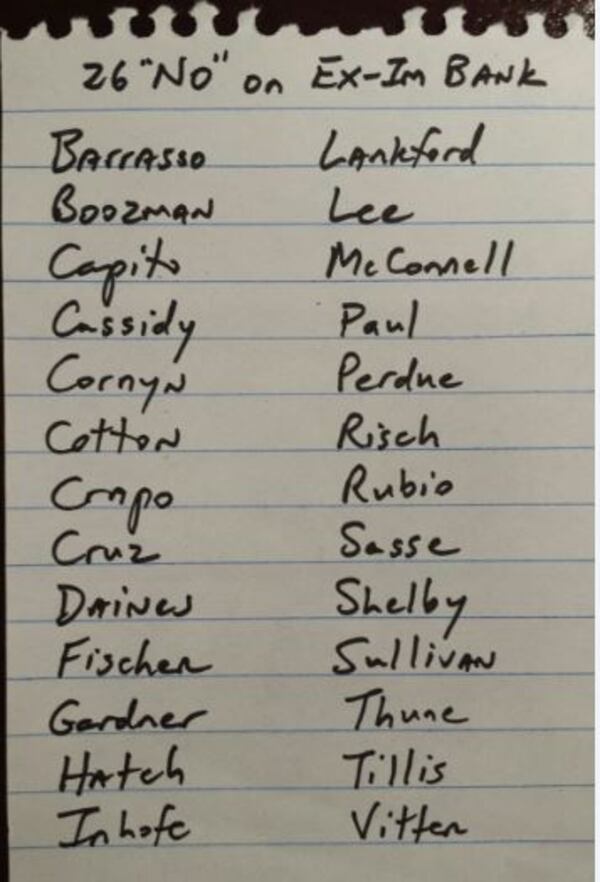 26 "NO" on Ex-Im BANK
Barrasso Lankford
Boozman Lee
Capito McConnell
Cassidy Paul
Cornyn Perdue
Cotton Risch
Crapo Rubio
Cruz Sasse
Daines Shelby
Fischer Sullivan
Gardner Thune
Hatch Tillis
Inhofe Vitter